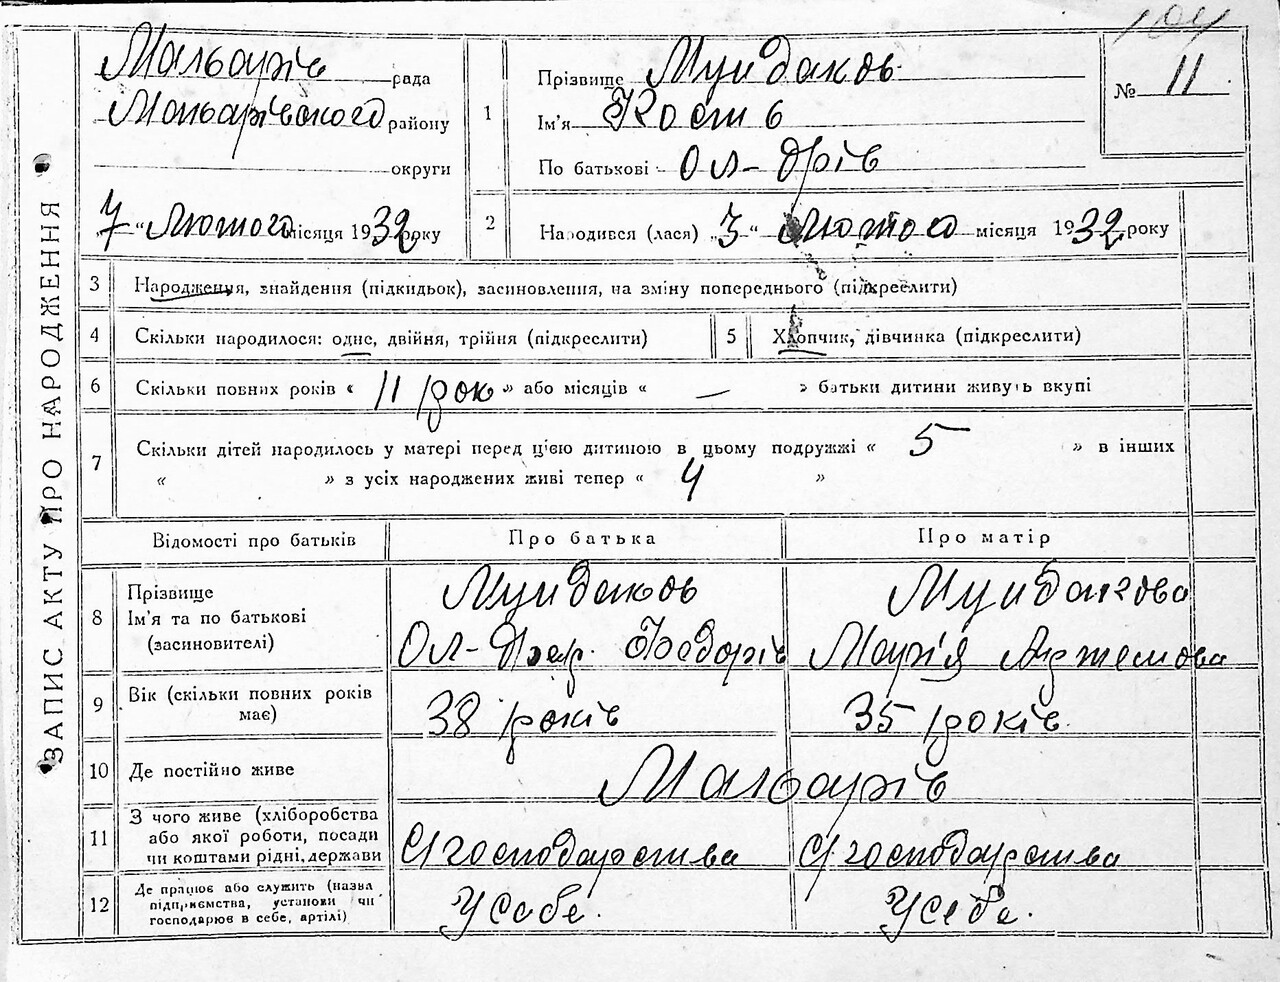 104
ЗАПИС АКТУ ПРО НАРОДЖЕННЯ
рада
району
округи
7 " Лютого місяця 1932 року
1
Прізвище Мундаковь
Ім'я Кость
По батькові Ол-дрів
№ 11
2
Народився (лася) „3" Лютого місяця 1932 року
3
Народження, знайдення (підкидьок), засиновлення, на зміну попереднього (підкреслити)
4
Скільки народилося: одне, двійня, трійня (підкреслити)
5
Хлопчик, дівчинка (підкреслити)
6
Скільки повних років « 11 рок » або місяців « — » батьки дитини живуть вкупі
7
Скільки дітей народилось у матері перед ц'єю дитиною в цьому подружжі « 5 » в інших
« » з усіх народжених живі тепер « 4 »
Відомості про батьків
Про батька
Про матір
8
Прізвище
Ім'я та по батькові
(засиновителі)
Мундаковь
Ол-
Федорів
Мундакова
Марія Артемова
9
Вік (скільки повних років
має)
38 років
35 років.
10
Де постійно живе
11
З чого живе (хліборобства
або якої роботи, посади
чи коштами рідні, держави
З господарства
З господарства
12
Де працює або служить (назва
підприємства, установи чи
господарює в себе, артілі)
У себе.
У себе.